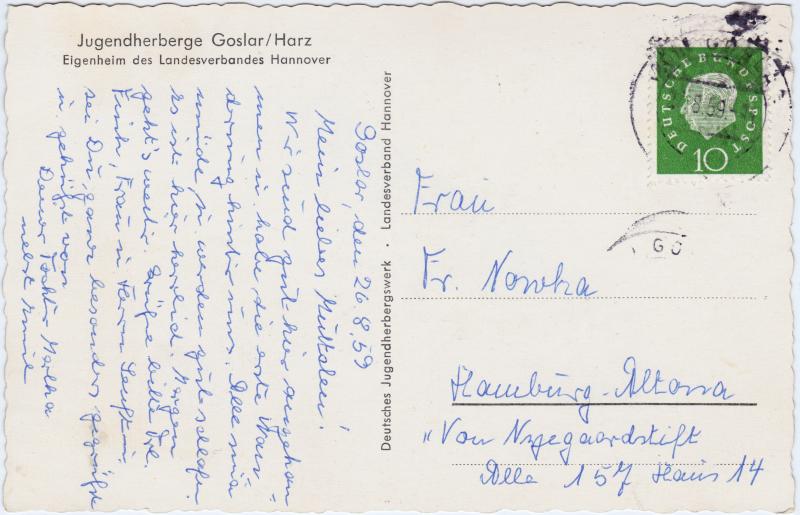 Jugendherberge Goslar/Harz
Eigenheim des Landesverbandes Hannover
Goslar, den 26.8.59
Mein liebes Muttchen!
Wir sind gut hier angekom-
men u. habe die erste Wan-
derung hinter uns. Alle sind
müde, so werden gut schlafen.
Es ist hier herrlich. Morgen
geht's weiter. Grüße bitte Frl.
Fink, Frau u. Herrn
sei Du ganz besonders gegrüßt
u. von
Deiner Tochter Martha
nebst
Deutsches Jugendherbergswerk · Landesverband Hannover
DEUTSCHE BUNDESPOST
10
8.59
GO
Frau
Fr. Nowka
Hamburg-Altona
"Von Nyegaardstift
Alle 157 Haus 14